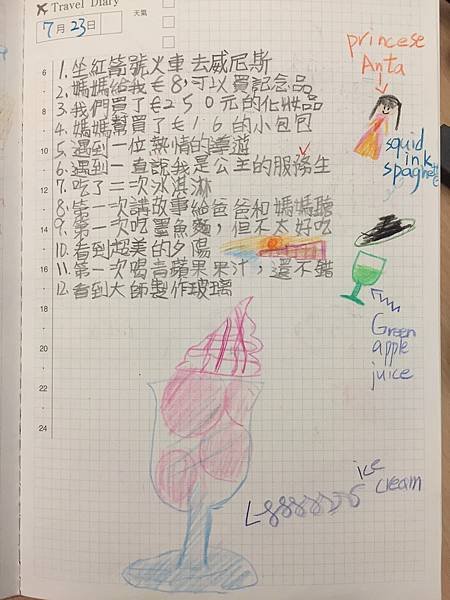 Travel Diary
7月23日
天氣
1. 坐紅箭號火車去威尼斯
2. 媽媽給我€8,可以買記念品
3. 我們買了€250元的化妝品
4. 媽媽幫買了€16的小包包
5. 遇到一位熱情的導遊
6. 遇到一直說我是公主的服務生
7. 吃了二次冰淇淋
8. 第一次講故事給爸爸和媽媽聽
9. 第一次吃墨魚麵,但不太好吃
10. 看到超美的夕陽
11. 第一次喝青蘋果果汁,還不錯
12. 看到大師製作玻璃
6
8
10
12
14
16
18
20
22
24
princese
Anta
squid
ink
spaghetti
Green
apple
juice
ice
cream